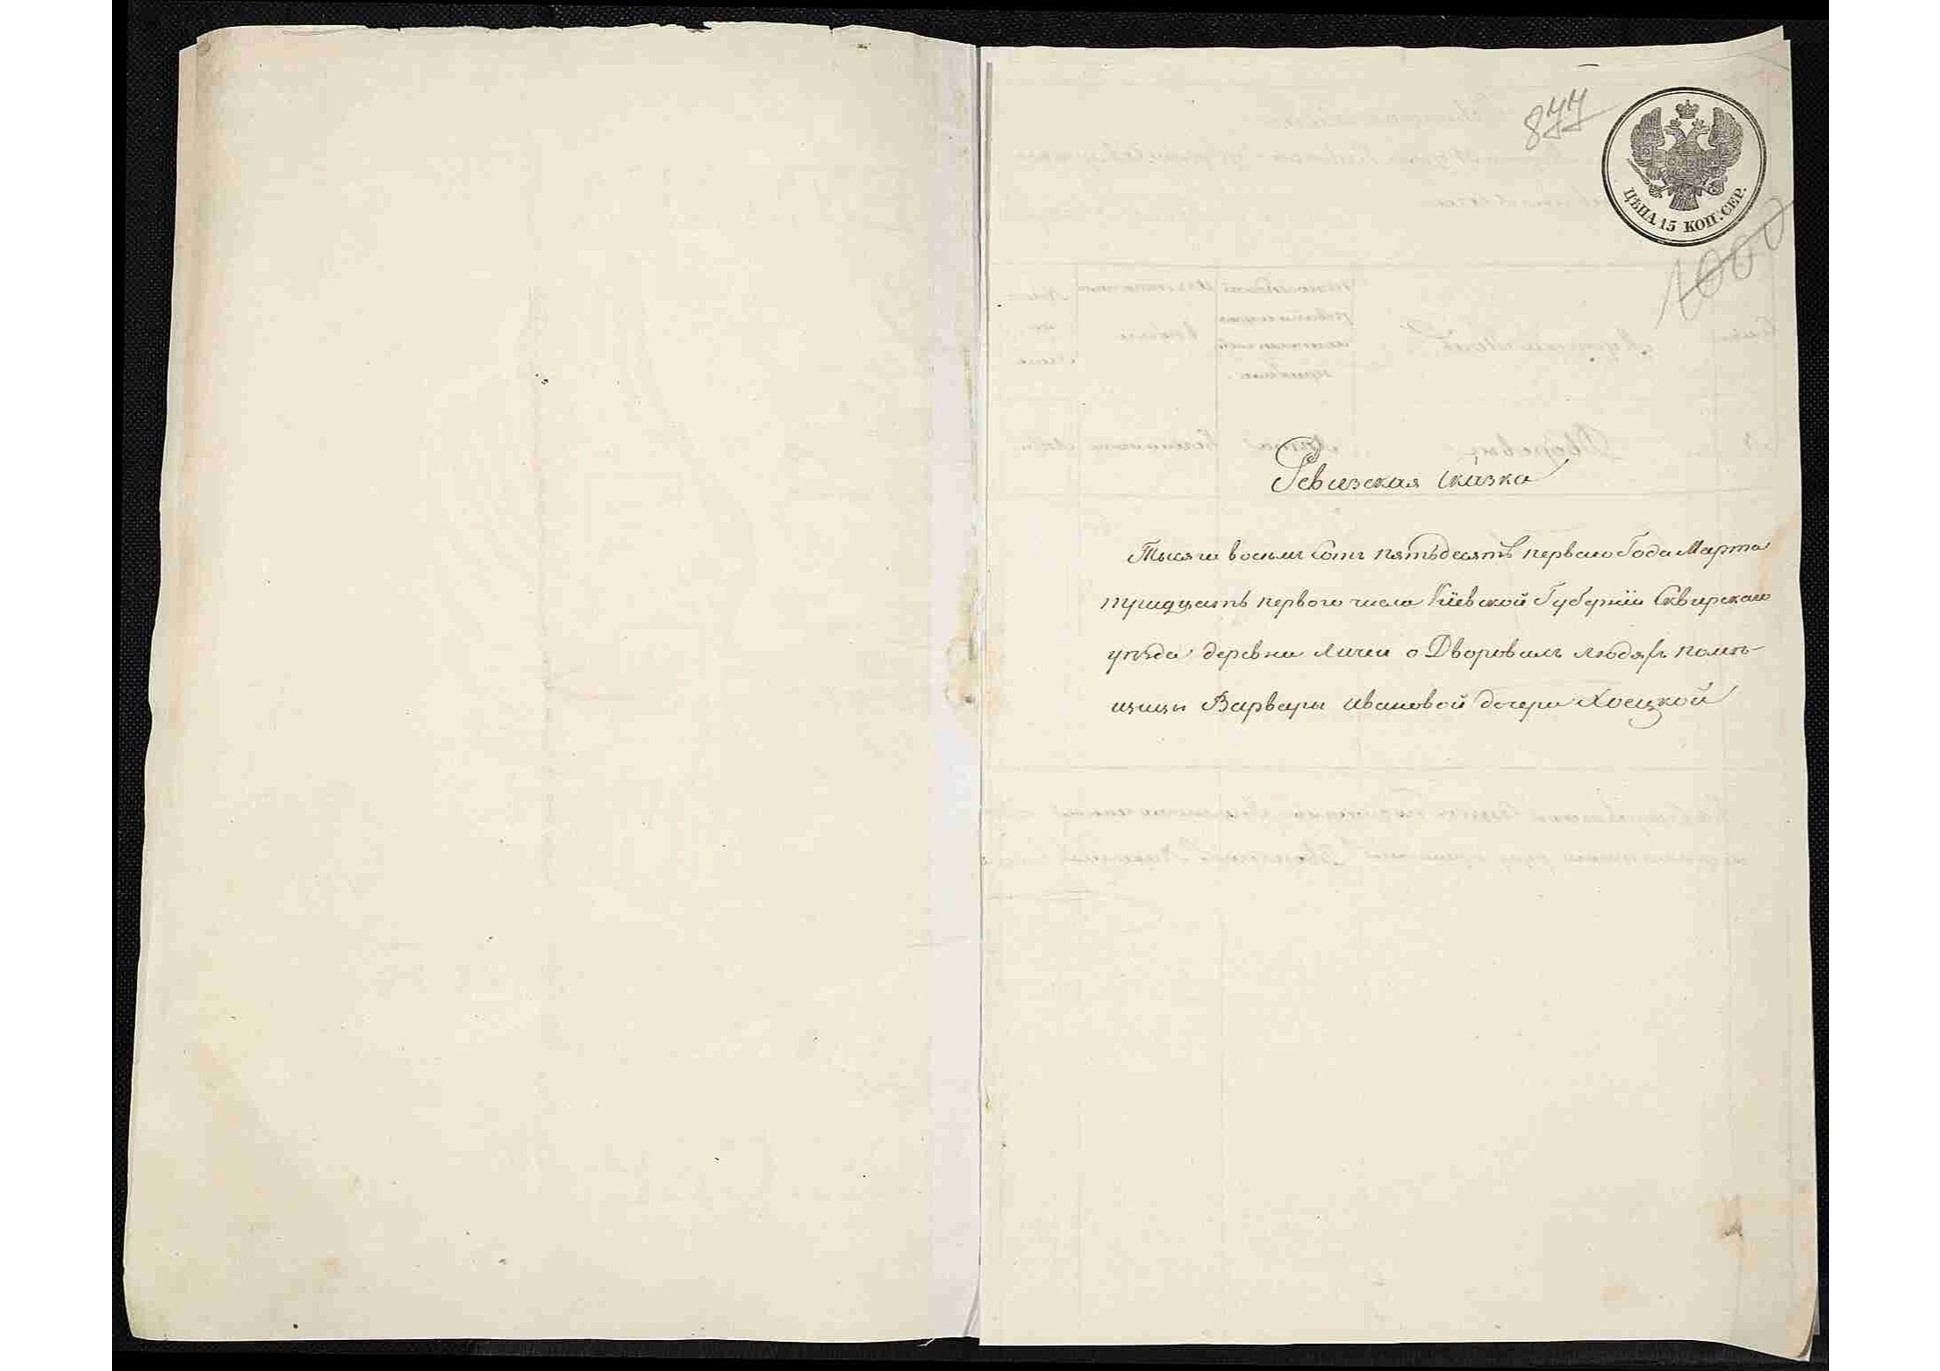 877
ЦѢНА 15 КОП. СЕР.
1000
Ревизская Сказка
Тысяча восемь Сотъ пятьдесятъ перваго Года Марта
тридцать перваго числа Кіевской Губерніи Сквирскаго
уѣзда деревни Личеи о Дворовыхъ людяхъ помѣ-
щицы Варвары Ивановой дочери Хоецкой